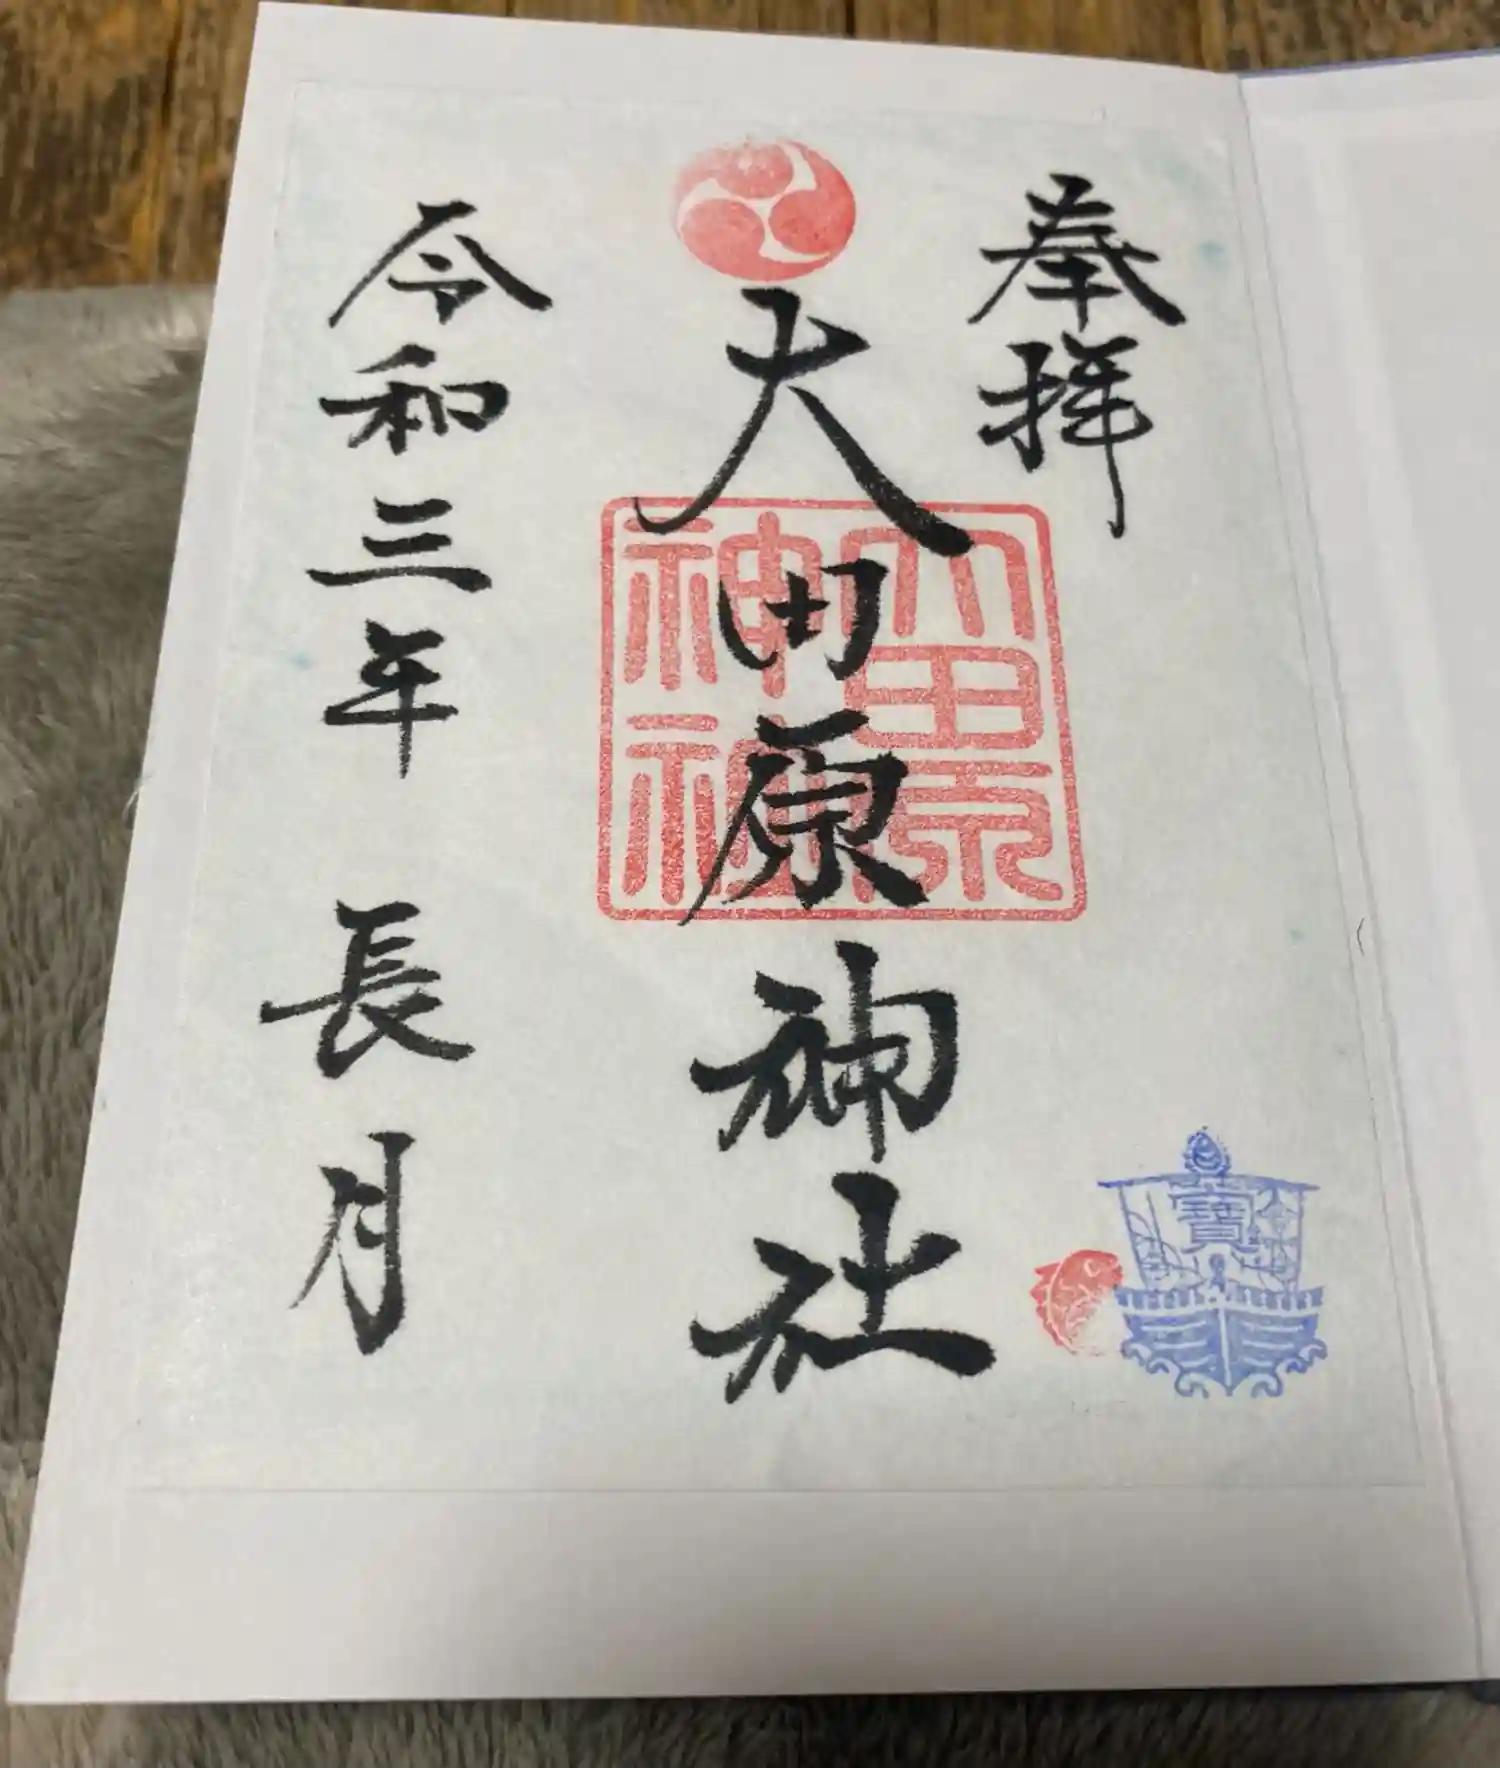 奉拝
大田原神社
大田原
神社
令和三年 長月
寶